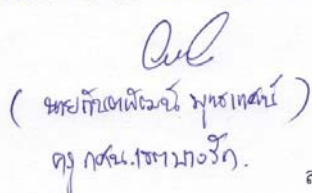 (นายกันตพัฒน์ พุทธเทศน์)
ครู กศน.เขตบางรัก.